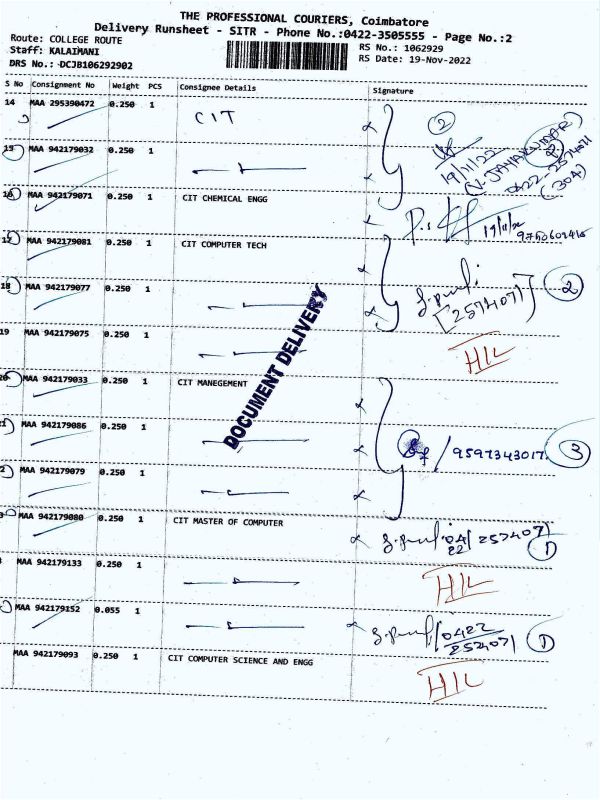 THE PROFESSIONAL COURIERS, Coimbatore
Delivery Runsheet - SITR - Phone No.:0422-3505555 - Page No.:2
Route: COLLEGE ROUTE
Staff: KALAIMANI
RS No.: 1062929
DRS No.: DCJB106292902
RS Date: 19-Nov-2022
S No Consignment No Weight PCS Consignee Details Signature
14 MAA 295390472 0.250 1 CIT
2
19/11/22
15 MAA 942179032 0.250 1
0422-2574071
(304)
16 MAA 942179071 0.250 1 CIT CHEMICAL ENGG
17 MAA 942179081 0.250 1 CIT COMPUTER TECH
18 MAA 942179077 0.250 1
[2574071] 2
19 MAA 942179075 0.250 1
HIL
DOCUMENT DELIVERY
20 MAA 942179033 0.250 1 CIT MANEGEMENT
21 MAA 942179086 0.250 1
9597343017 3
2 MAA 942179079 0.250 1
3 MAA 942179080 0.250 1 CIT MASTER OF COMPUTER
0422 257407 1
MAA 942179133 0.250 1
HIL
MAA 942179152 0.055 1
0422 257407 1
MAA 942179093 0.250 1 CIT COMPUTER SCIENCE AND ENGG
HIL